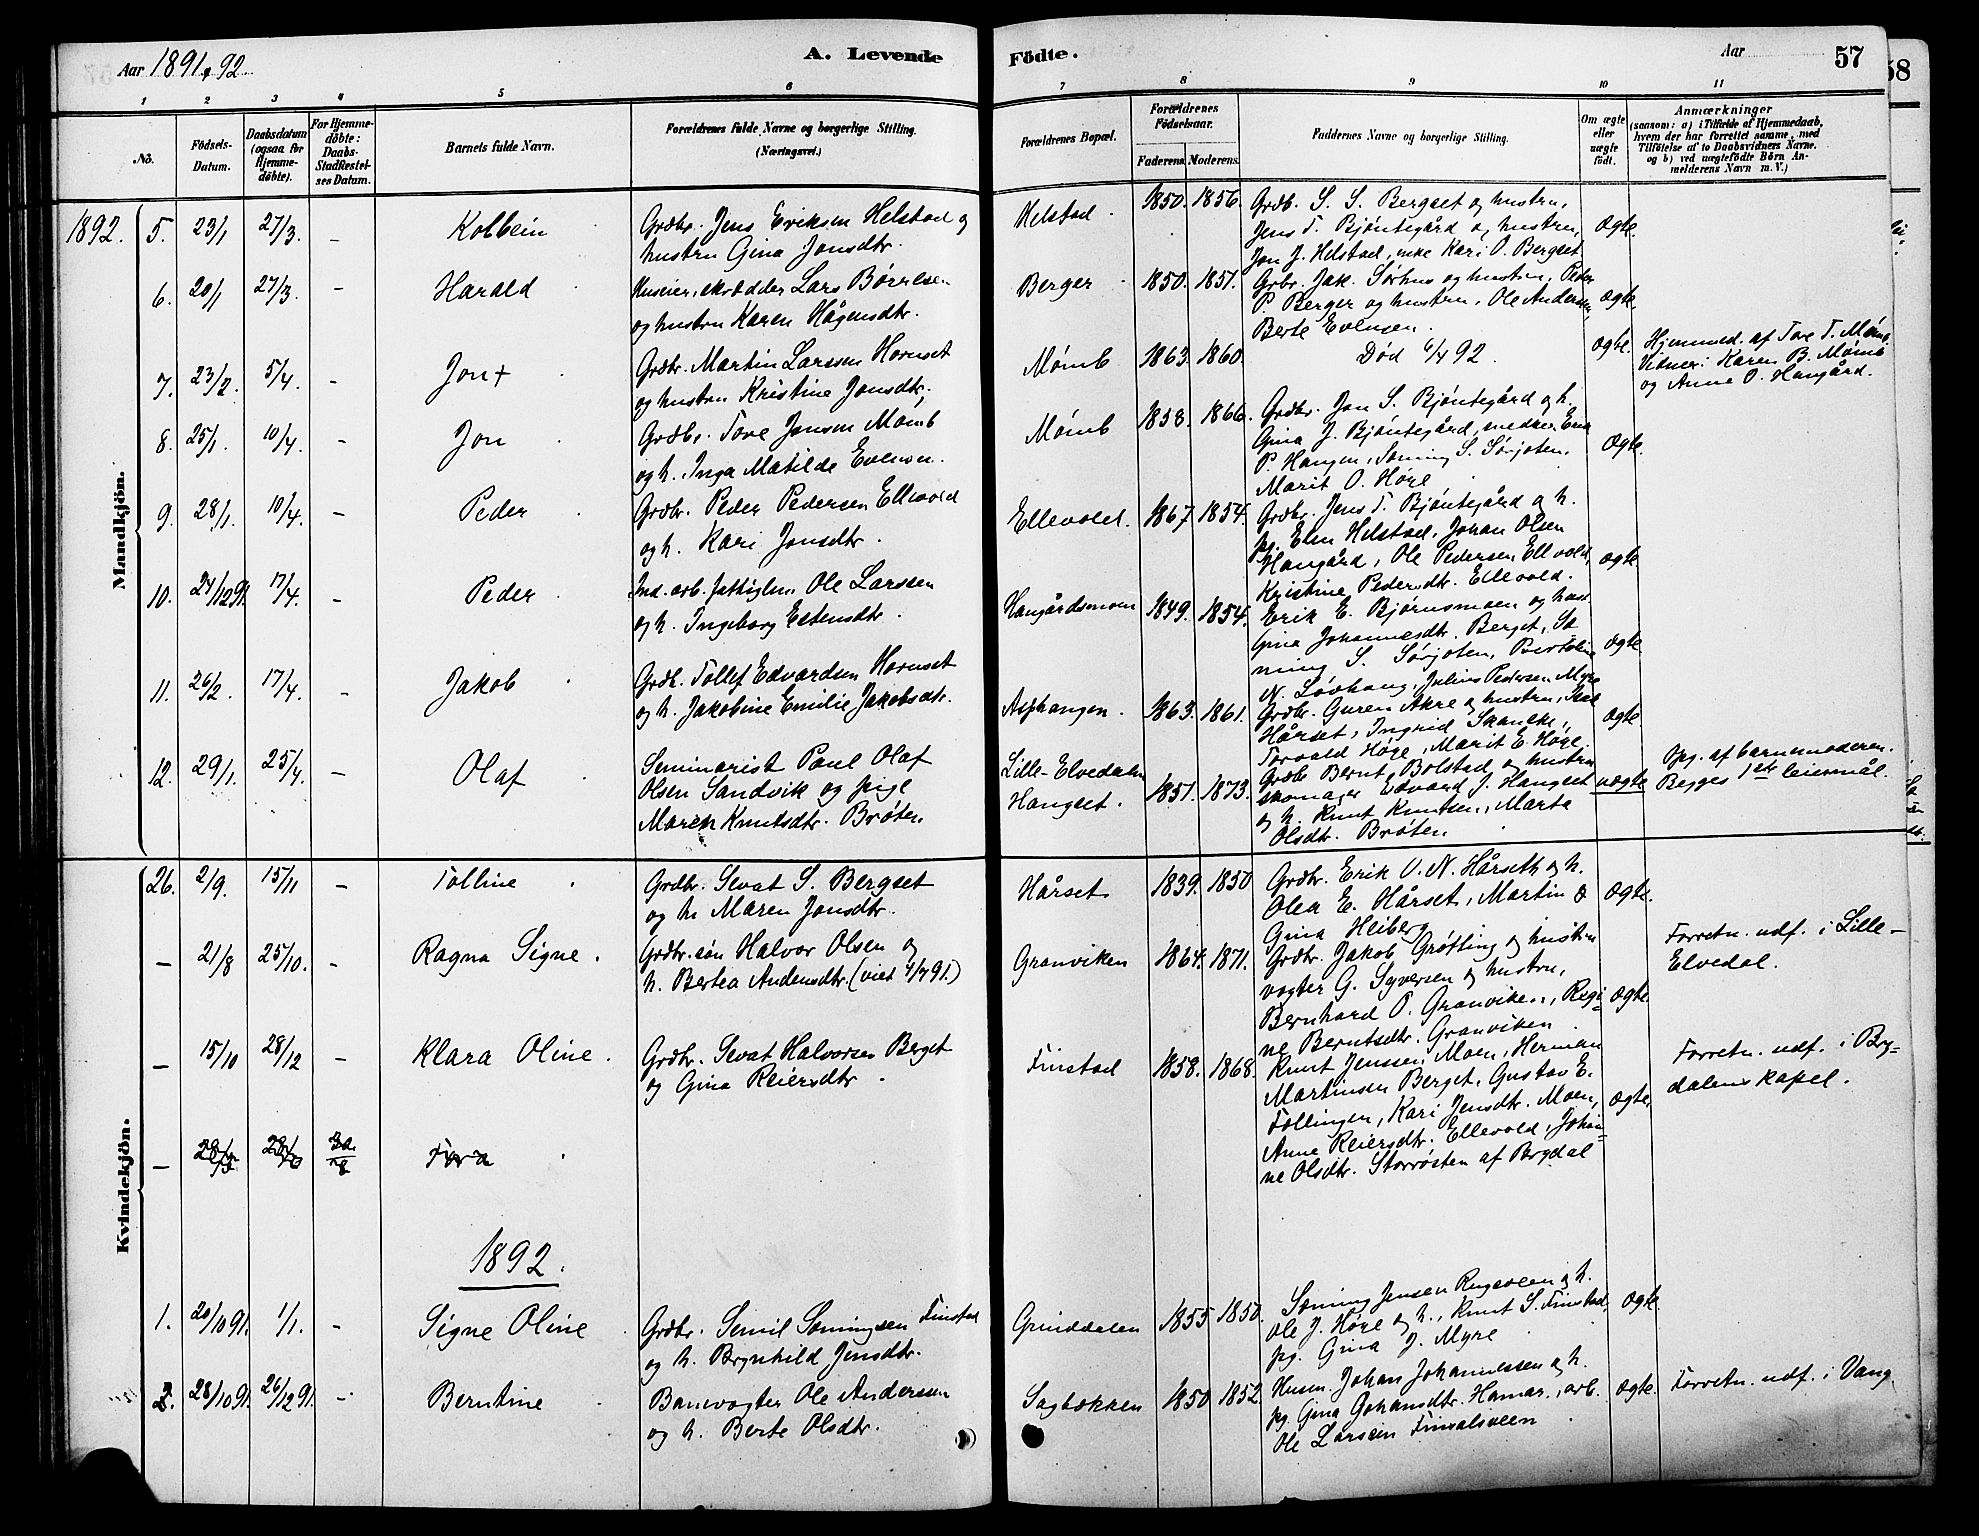 Aar 1891 & 92.
A. Levende
Födte.
Aar
57
58
1 2 3 4 5 6 7 8 9 10 11
No.
Födsels-Datum.
Daabsdatum (ogsaa for Hjemme-döbte).
For Hjemme-döbte: Daabs-Stadfæstel-ses Datum.
Barnets fulde Navn.
Forældrenes fulde Navne og borgerlige Stilling. (Næringsvei.)
Forældrenes Bopæl.
Forældrenes Födselsaar.
Faderens. Moderens.
Faddernes Navne og borgerlige Stilling.
Om ægte eller uægte födt.
Anmærkninger
(saasom: a) i Tilfælde af Hjemmedaab, hvem der har forrettet samme, med Tilföielse af to Daabsvidners Navne. og b) ved uægtefödte Börn An-melderens Navn m. V.)
Mandkjön.
1892. 5. 23/1 27/3. – Kolbein
Grdbr. Jens Eriksen Helstad og
hustru Gina Jonsdtr.
Helstad. 1850. 1856.
Grdb. S. S. Bergset og hustru,
Jens T. Bjøntegård og hustru,
Jon J. Helstad, enke Kari O. Bergset
Ægte.
6. 20/1 27/3. – Harald
Huseier, skrædder Lars Børresen
og hustru Karen Hågensdtr.
Berger 1850. 1851.
Grbr. Jak. Sørhus og hustru, Peder
P. Berger og hustru, Ole Andersen,
Berte Evensen.
Ægte.
7. 23/2. 5/4. – Jon +
Grdbr. Martin Larssen Hornset
og hustru Kristine Jonsdtr.
Mømb 1863. 1860.
Død 6/4 92.
Ægte.
Hjemmed. af Tore T. Mømb
Vidner: Karen B. Mømb
og Anne O. Haugård.
8. 25/1. 10/4. – Jon
Grdbr. Tore Jonsen Mømb
og h. Inga Matilde Evensen.
Mømb 1858. 1866.
Grdbr. Jon S. Bjøntegård og h.
Gina J. Bjøntegård, snedker Erik
P. Haugen, Søming S. Sørjoten,
Marit O. Høye
Ægte.
9. 28/1. 10/4. – Peder
Grdbr. Peder Pedersen Ellevold
og h. Kari Jonsdtr.
Ellevold. 1867. 1854.
Grdbr. Jens T. Bjøntegård og h.
pg. Elen Helstad, Johan Olsen
Haugård, Ole Pedersen Ellevold,
Kristine Pedersdtr. Ellevold.
Ægte
10. 24/12 91. 17/4. – Peder
Ind. arb. fattiglem Ole Larssen
og h. Ingeborg Estensdtr.
Haugårdsmoen 1849. 1854.
Erik E. Bjørnsmoen og hust
Gina Johannesdtr. Berget, Sø
ming S. Sørjoten, Bertoline
N. Løvhaug, Julius Pedersen Myre
Ægte.
11. 26/2. 17/4. – Jakob
Grdb. Tollef Edvardsen Hornset
og h. Jakobine Emilie Jakobsdtr.
Asphaugen. 1863. 1861.
Grdbr. Guren Akre og hustru,
Hårset, Ingrid Skancke,
Torvald Høye, Marit E. Høye.
Ægte
12. 29/1. 25/4. – Olaf
Seminarist Paul Olaf
Olsen Sandvik og pige
Maren Knutsdtr. Brøten
Lille-Elvedalen
Haugset. 1851. 1873.
Grdb. Bernt Bolstad og hustru
skomager Edvard J. Haugset
og h. Knut Knutsen, Marta
Olsdtr. Brøten
uægte
Opg. af barnemoderen.
Begges 1ste leiermål.
Kvindekjön.
26. 2/9. 15/11 – Tolline
Grdbr. Sevat S. Bergset
og h. Maren Jonsdtr.
Hårset 1839. 1850
Grdbr. Erik O. N. Hårseth og h.
Olea E. Hårset, Martin &
Gina Heiberg
Ægte.
– 21/8 25/10. – Ragna Signe.
Grdbr. søn Halvor Olsen og
h. Bertea Andersdtr. (viet 4/4 91.)
Granviken 1864. 1871.
Grdbr. Jakob Grøtting og hustru
vogter G. Syversen og hustru,
Bernhard O. Granviken, Regi-
ne Berntsdtr. Granviken
Ægte
Forretn. udf. i Lille-
Elvedal.
– 15/10 28/12 – Klara Oline.
Grdbr. Sevat Halvorsen Berget
og Gina Reiersdtr.
Finstad 1858. 1868.
Knut Jenssen Moen, Herman
Martinsen Berget, Gustav E.
Tollingen, Kari Jensdtr. Moen,
Anne Reiersdtr. Ellevold, Johan-
ne Olsdtr. Storrøsten af Brydal
Ægte.
Forretn. udf. i Bry-
dalens kapel.
– Tora
1892.
1. 20/10 91. 1/1. – Signe Oline
Grdbr. Semil Sømingsen Finstad
og h. Brynhild Jensdtr.
Grinddalen 1855 1850.
Søming Jensen Rugsveen og h.
Ole J. Høye og h., Knut S. Finstad,
pg. Gina J. Myre
Ægte.
2. 28/10 91. 26/12 91. – Berntine
Banevogter Ole Andersen
og h. Berte Olsdtr.
Sagbækken 1850 1852.
Husm. Johan Johannessen og h.
pg. Gina Johansdtr. Hamar, arb.
Ole Larssen Finsalsveen
Ægte.
Forretn. udf. i Vang